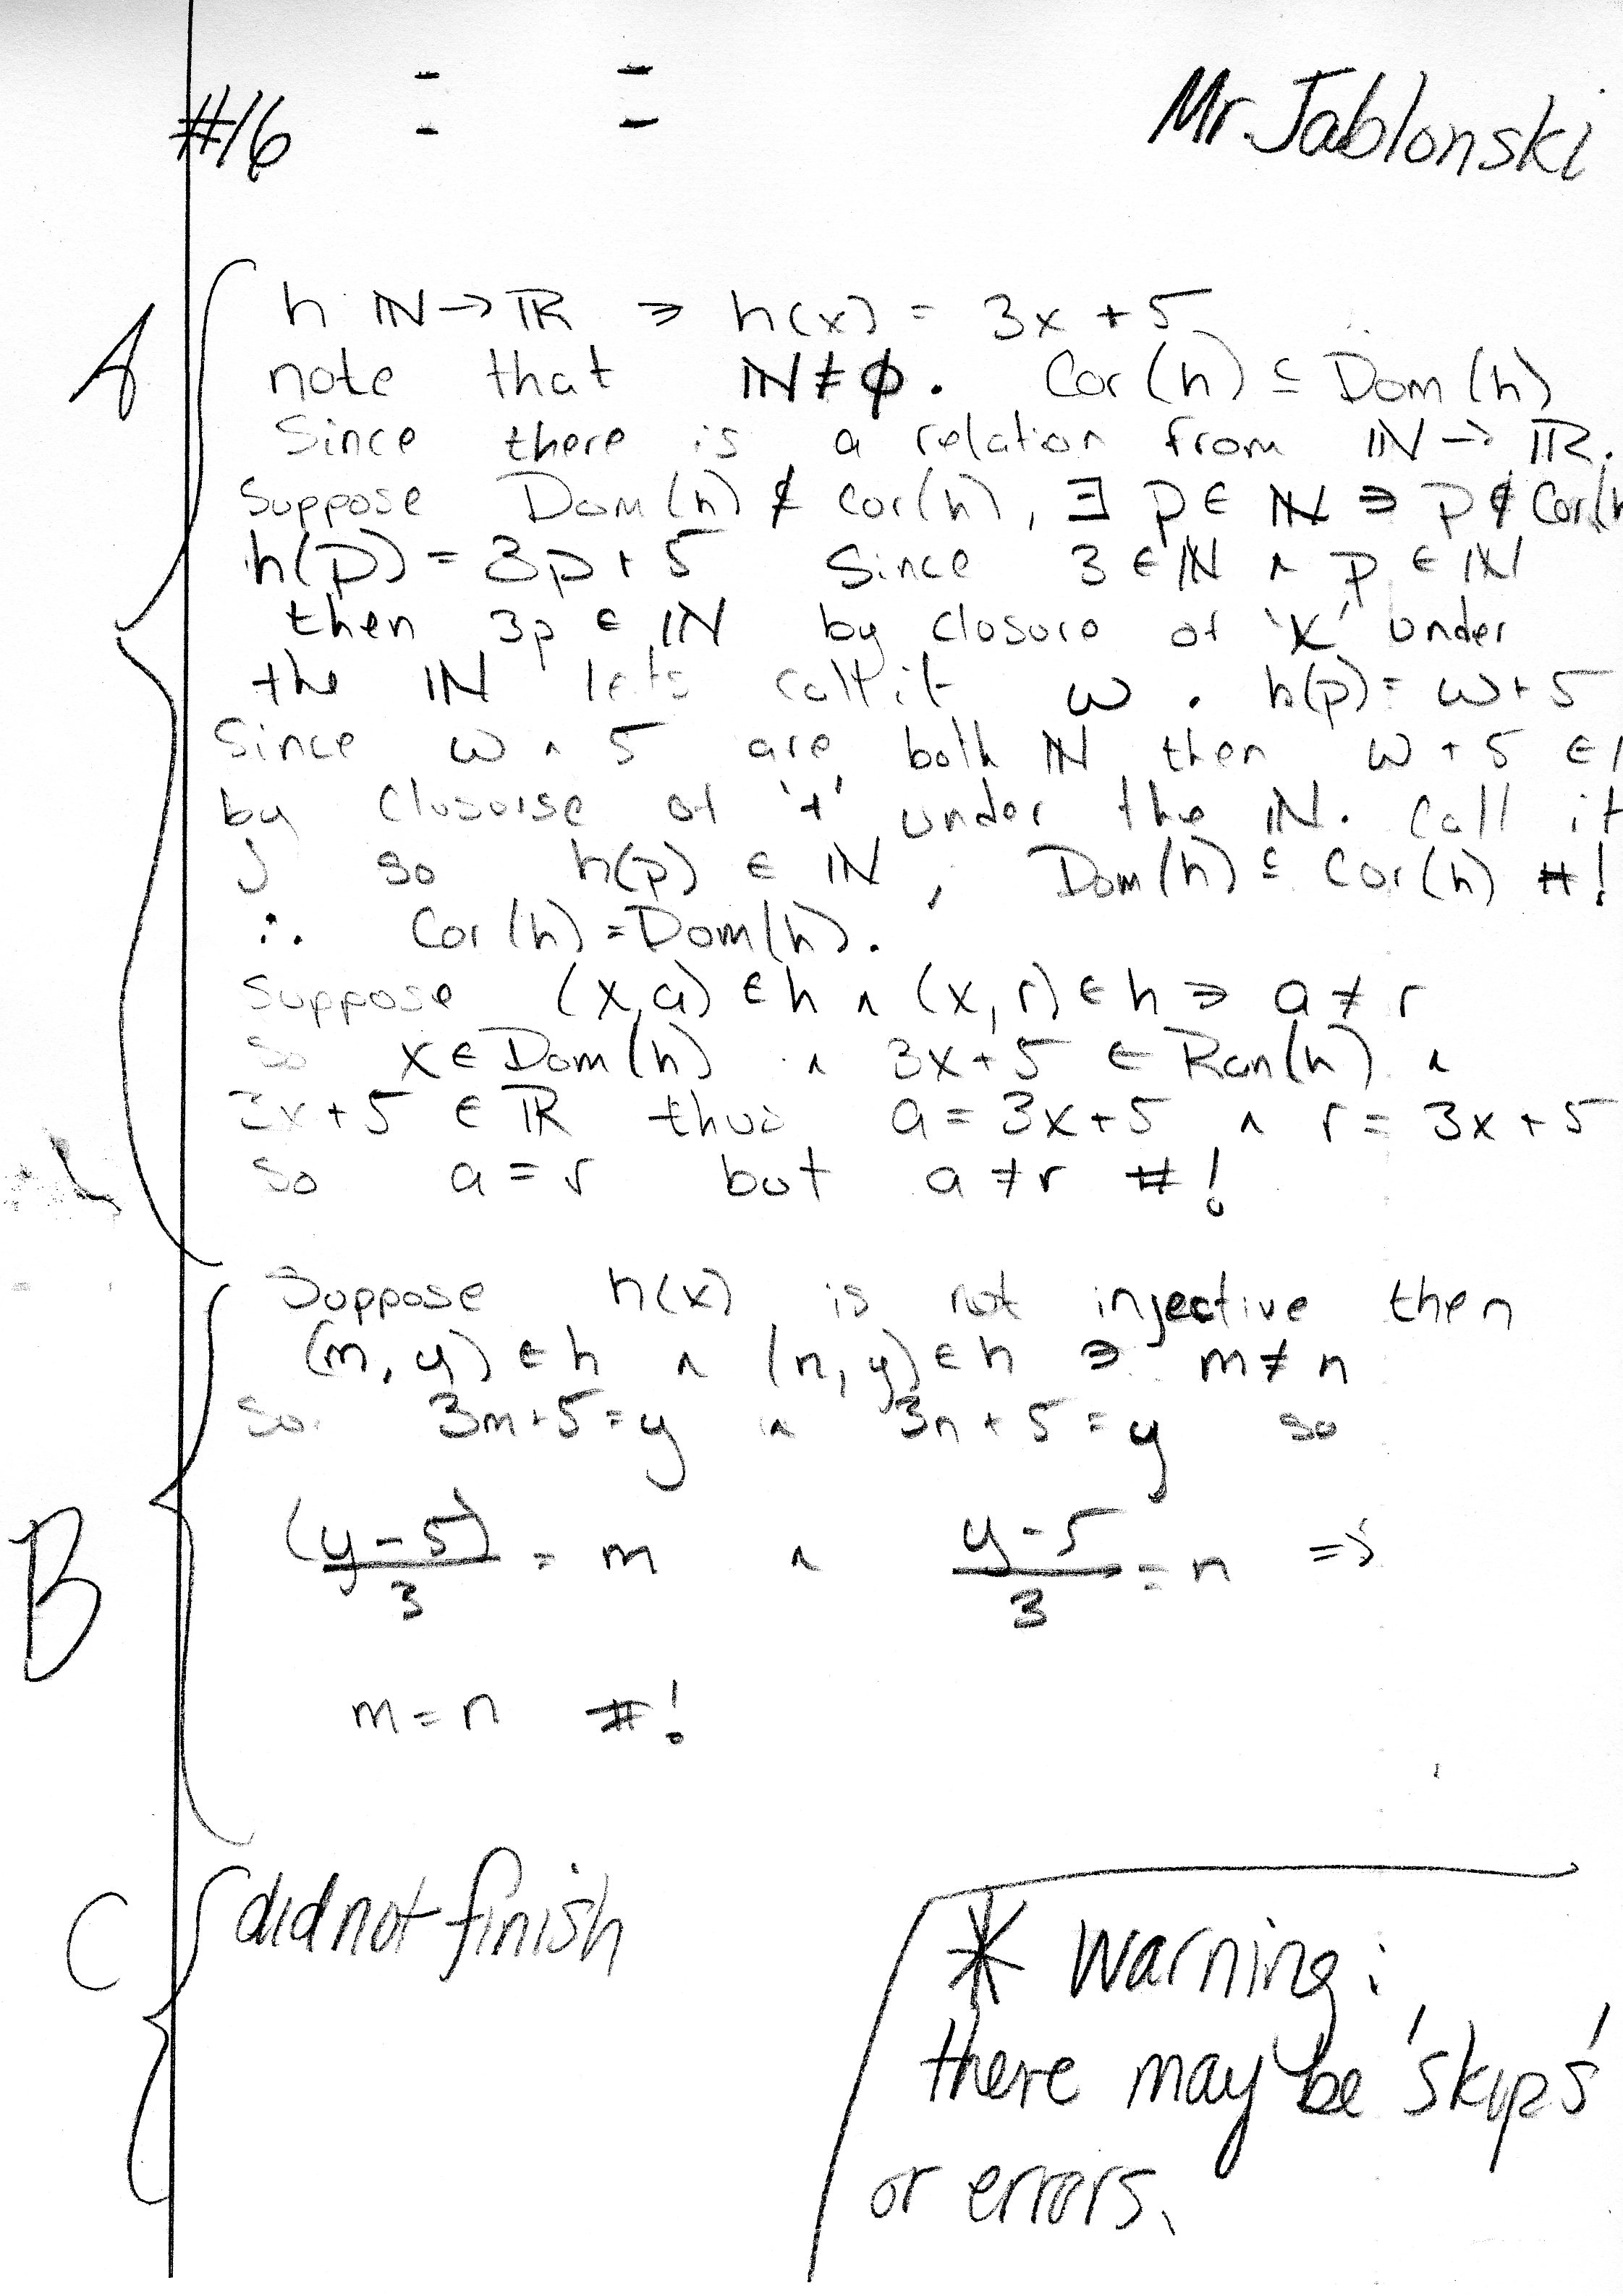 #16 Mr. Jablonski
A
h IN → IR ∋ h(x) = 3x + 5
note that IN ≠ ϕ. Cor(h) ⊆ Dom(h)
Since there is a relation from IN → IR.
Suppose Dom(h) ⊄ Cor(h), ∃ p ∈ IN ∋ p ∉ Cor(h
h(p) = 3p + 5 Since 3 ∈ IN ∧ p ∈ IN
then 3p ∈ IN by closure of 'x' under
the IN lets call it w. h(p) = w + 5
Since w ∧ 5 are both IN then w + 5 ∈ I
by Closurse of '+' under the IN. Call it
J so h(p) ∈ IN, Dom(h) ⊆ Cor(h) #!
∴ Cor(h) = Dom(h).
Suppose (x, a) ∈ h ∧ (x, r) ∈ h ∋ a ≠ r
So x ∈ Dom(h) ∧ 3x + 5 ∈ Ran(h) ∧
3x + 5 ∈ IR thus a = 3x + 5 ∧ r = 3x + 5
So a = r but a ≠ r #!
B
Suppose h(x) is not injective then
(m, y) ∈ h ∧ (n, y) ∈ h ∋ m ≠ n
So 3m + 5 = y ∧ 3n + 5 = y so
(y - 5)/3 = m ∧ y - 5/3 = n ⇒
m = n #!
C
did not finish
* Warning:
there may be 'skips'
or errors.